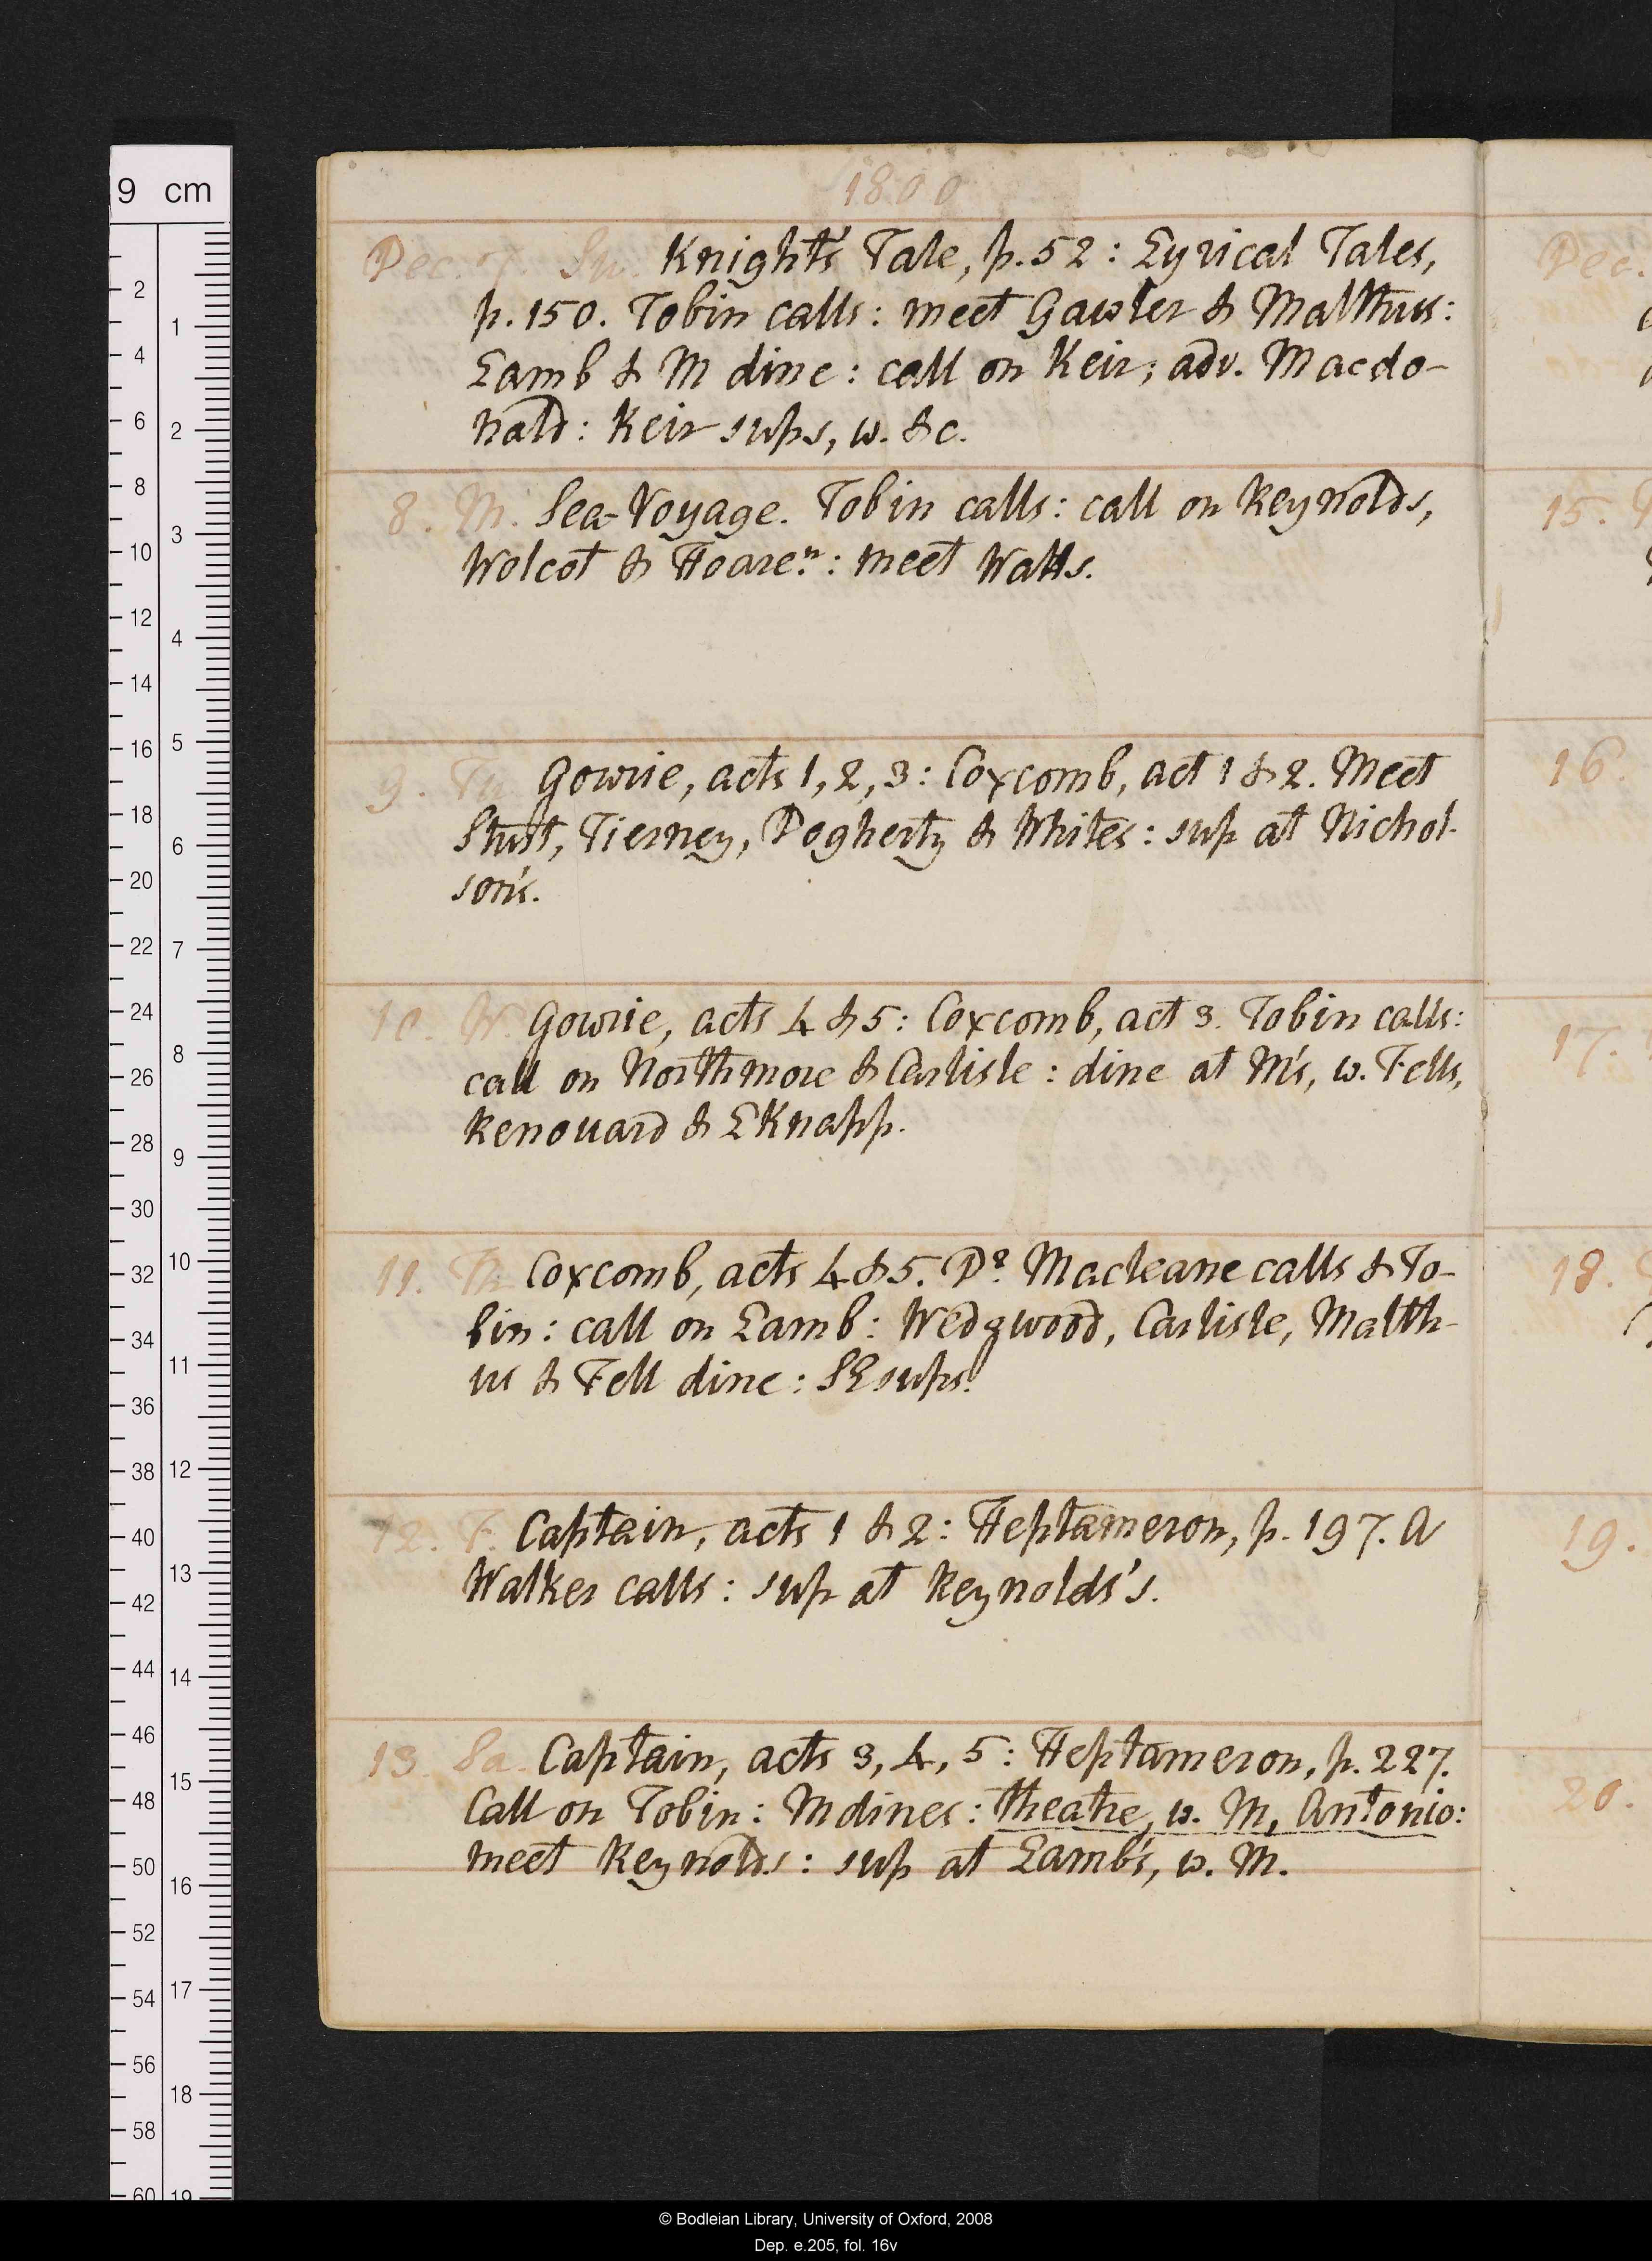 1800
Dec. 7. Su. Knight's Tale, p. 52: Lyrical Tales,
p. 150. Tobin calls: meet Gawler & Malthus:
Lamb & M dine: call on Keir; adv. Macdo-
nald: Keir sups, w. &c.
8. M. Sea-Voyage. Tobin calls: call on Reynolds,
Wolcot & Hoare n: meet Watts.
9. Tu. Gowrie, acts 1, 2, 3: Coxcomb, act 1 & 2. Meet
Stutt, Tierney, Dogherty & Whites: sup at Nichol-
son's.
10. W. Gowrie, acts 4 & 5: Coxcomb, act 3. Tobin calls:
call on Northmore & Carlisle: dine at M's, w. Fells,
Renouard & L Knapp.
11. Th. Coxcomb, acts 4 & 5. Dr. Macleane calls & To-
bin: call on Lamb: Wedgwood, Carlisle, Malth-
us & Fell dine: SE sups.
12. F. Captain, acts 1 & 2: Heptameron, p. 197. A
Walker calls: sup at Reynolds's.
13. Sa. Captain, acts 3, 4, 5: Heptameron, p. 227.
Call on Tobin: M dines: theatre, w. M, Antonio:
meet Reynolds: sup at Lamb's, w. M.
Dec.
15.
16.
17.
18.
19.
20.
9 cm
2
4
6
8
10
12
14
16
18
20
22
24
26
28
30
32
34
36
38
40
42
44
46
48
50
52
54
56
58
60
1
2
3
4
5
6
7
8
9
10
11
12
13
14
15
16
17
18
19
© Bodleian Library, University of Oxford, 2008
Dep. e.205, fol. 16v